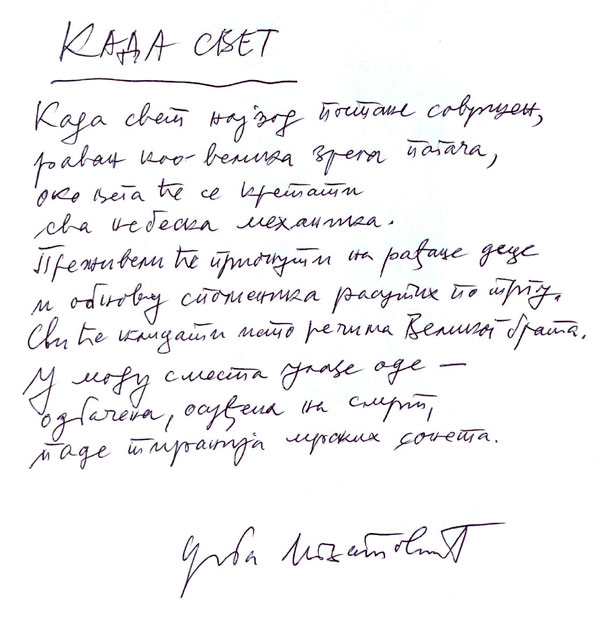 КАДА СВЕТ
Када свет најзад постане савршен,
раван као велика зрела погача,
око њега ће се кретати
сва небеска механика.
Преживели ће прионути на рађање деце
и обнову споменика расутих по тргу.
Сви ће клицати исто речима Великог брата.
У моду сместа улазе оде —
одбачена, осуђена на смрт,
паде тиранија мрских сонета.